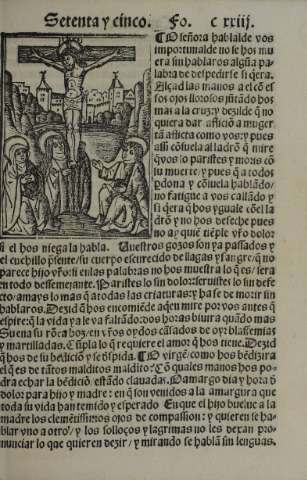 Setenta y cinco. Fo. C xxiij.
O señora hablalde vos
importunalde no se hos mu
era sin hablaros algũa pa
labra de despedirse si q̃era.
Alçad las manos a el cõ es
sos ojos llorosos jũtãdo hos
mas a la cruz: y dezilde q̃ no
quiera dar afliciõ a muger
tã aflicta como vos: y pues
assi cõsuela al ladrõ q̃ mire
q̃ vos lo paristes y moris cõ
su muerte/ y pues q̃ a todos
pdona y cõsuela hablãdo/
no fatigue a vos callãdo y
si q̃era q̃ hos yguale cõ el la
drõ y no hos deseche pues
no ay quiẽ tiẽple vr̃o dolor
si el hos niega la habla. Vuestros gozos son ya passados y
el cuchillo p̃sente/su cuerpo escurecido de llagas y sangre/q̃ no
parece hijo vr̃o: si en las palabras no hos muestra lo q̃ es/sera
en todo dessemejante. Paristes lo sin dolor seruistes lo sin defe
cto/amays lo mas q̃ a todas las criaturas: y ha se de morir sin
hablaros. Dezid q̃ hos encomiẽde a quien mire por vos antes q̃
espire: q̃ la vida ya le va faltãdo: dos horas biuira quãdo mas
Suena su võ a boz/en vr̃os oydos cãsados de oyr blasfemias
y martilladas. Cũpla lo q̃ requiere el amor q̃ hos tiene. Dezid
q̃ hos de su bẽdiciõ y se despida. O virgẽ/como hos bẽdizira
el q̃ es de tãtos malditos maldito? Cõ quales manos hos po
dra echar la bẽdiciõ estãdo clauadas. O amargo dia y hora d̃
dolor para hijo y madre: en q̃ son venidos a la amargura que
toda su vida han temido y esperado. En que el hijo buelue a la
madre los clemẽtissimos ojos de compassion: y quieren se ha
blar vno a otro/ y los solloços y lagrimas no les dexan pro
nunciar lo que quieren dezir/ y mirando se hablã sin lenguas.